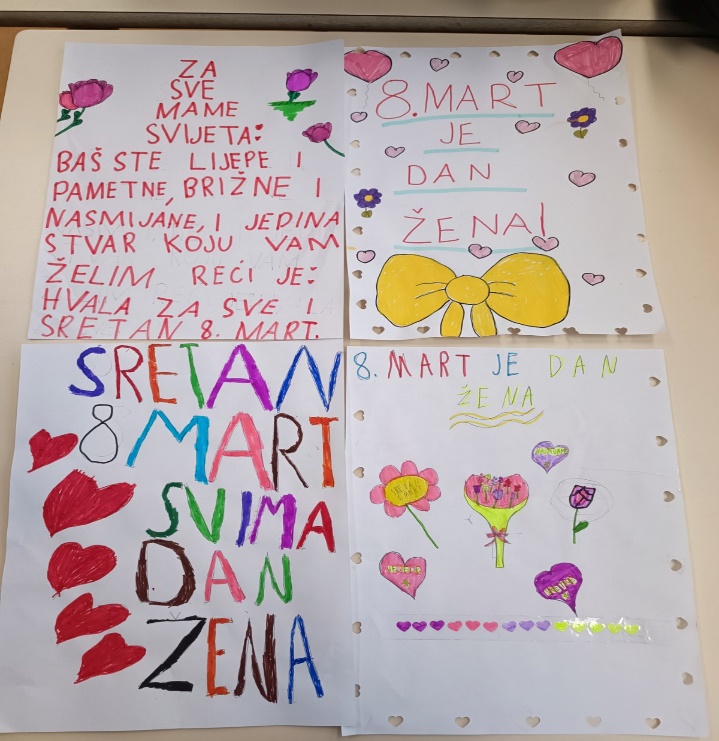 ZA
SVE
MAME
SVIJETA:
BAŠ STE LIJEPE I
PAMETNE, BRIŽNE I
NASMIJANE, I JEDINA
STVAR KOJU VAM
ŽELIM REĆI JE:
HVALA ZA SVE I
SRETAN 8. MART.
8. MART
JE
DAN
ŽENA!
SRETAN
8 MART
SVIMA
DAN
ŽENA
8. MART JE DAN
ŽENA